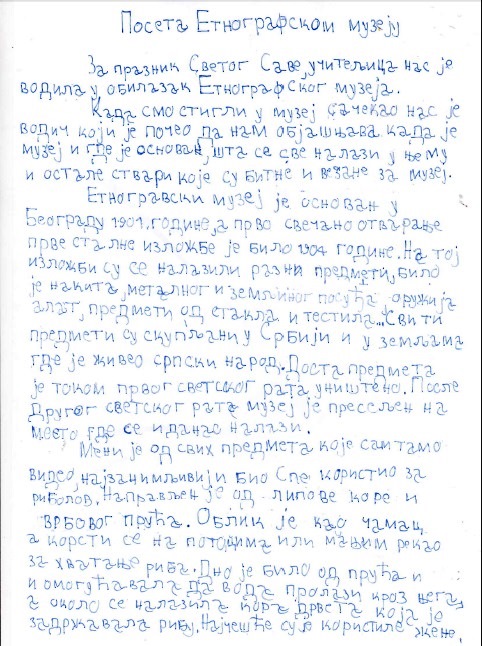 Посета Етнографском музеју
За празник Светог Саве,учитељица нас је
водила у обилазак Етнографског музеја.
Када смо стигли у музеј сачекао нас је
водич који је почео да нам објашњава када је
музеј и где је основан,шта се све налази у њему
и остале ствари које су битне и везане за музеј.
Етногравски музеј је основан у
Београду 1901.године,а прво свечано отварање
прве сталне изложбе је било 1904 године.На тој
изложби су се налазили разни предмети,било
је накита,металног и земљиног посуђа оружија
алат,предмети од стакла и тестила...Сви ти
предмети су скупљани у Србији и у земљама
где је живео српски народ.Доста предмета
је током првог светског рата,уништено.После
Другог светског рата музеј је пресељен на
место где се и данас налази.
Мени је од свих предмета које сам тамо
видео,најзанимљивији био користио за
риболов.Направљен је од липове коре и
врбовог прућа.Облик је као чамац
а корсти се на потоцима или мањим рекао
за хватање риба.Дно је било од прућа и
и омогућавала да вода пролази кроз њега,
а около се налазила кора дрвета која је
задржавала рибу.Најчешће су је користиле жене.